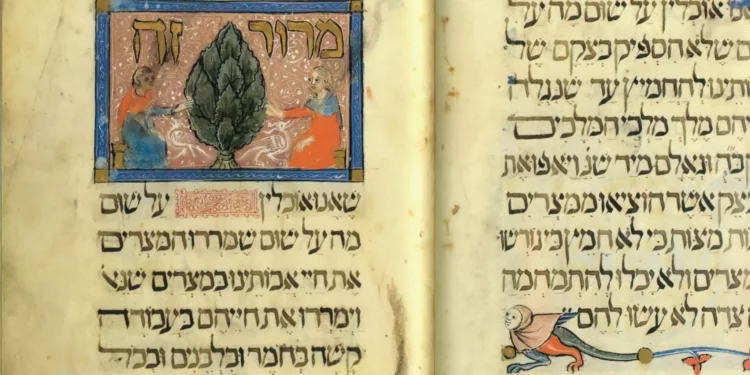 אוכלין על שום מה על
שלא הספיק בצקם של
ותינו להחמיץ עד שנגלה
יהם מלך מלכי המלכים
קבה וגאלם מיד שנ׳ ויאפו את
צק אשר הוציאו ממצרים
ות מצות כי לא חמץ כי גורשו
מצרים ולא יכלו להתמהמה
צדה לא עשו להם
מרור זה
שאנו אוכלין על שום
מה על שום שמררו המצרים
את חיי אבותינו במצרים שנא׳
וימררו את חייהם בעבודה
קשה בחמר ובלבנים ובכל